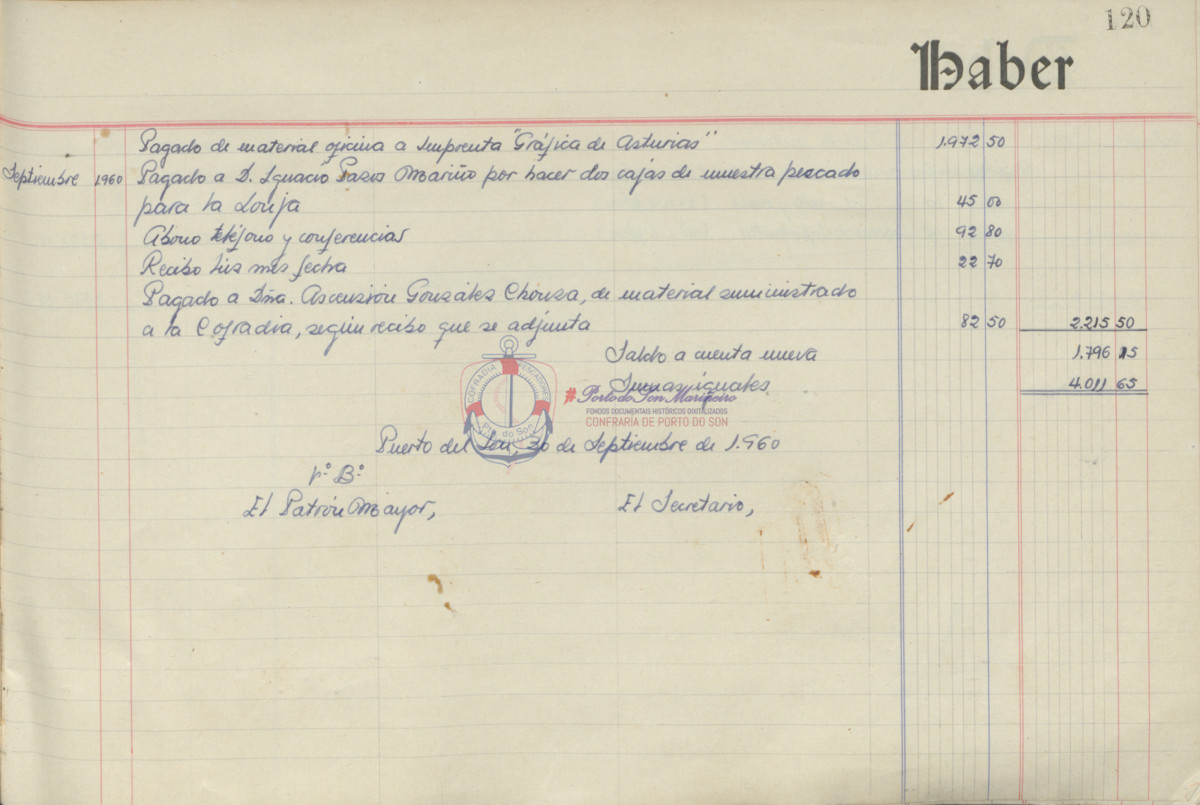 120
Haber
Pagado de material oficina a Imprenta "Gráfica de Asturias" 1.972 50
Septiembre 1960 Pagado a D. Ignacio Pasos Mariño por hacer dos cajas de muestra pescado
para la Lonja 45 00
Abono teléfono y conferencias 92 80
Recibo luz mes fecha 22 70
Pagado a Dña. Ascensión González Chouza, de material suministrado
a la Cofradia, según recibo que se adjunta 82 50 2.215 50
Saldo a cuenta nueva 1.796 15
Sumas iguales 4.011 65
COFRADIA PESCADORES
Pto. do Son
#Porto do Son Mariñeiro
FONDOS DOCUMENTAIS HISTÓRICOS DIXITALIZADOS
CONFRARÍA DE PORTO DO SON
Puerto del Son, 30 de Septiembre de 1.960
Vº Bº
El Patrón Mayor, El Secretario,